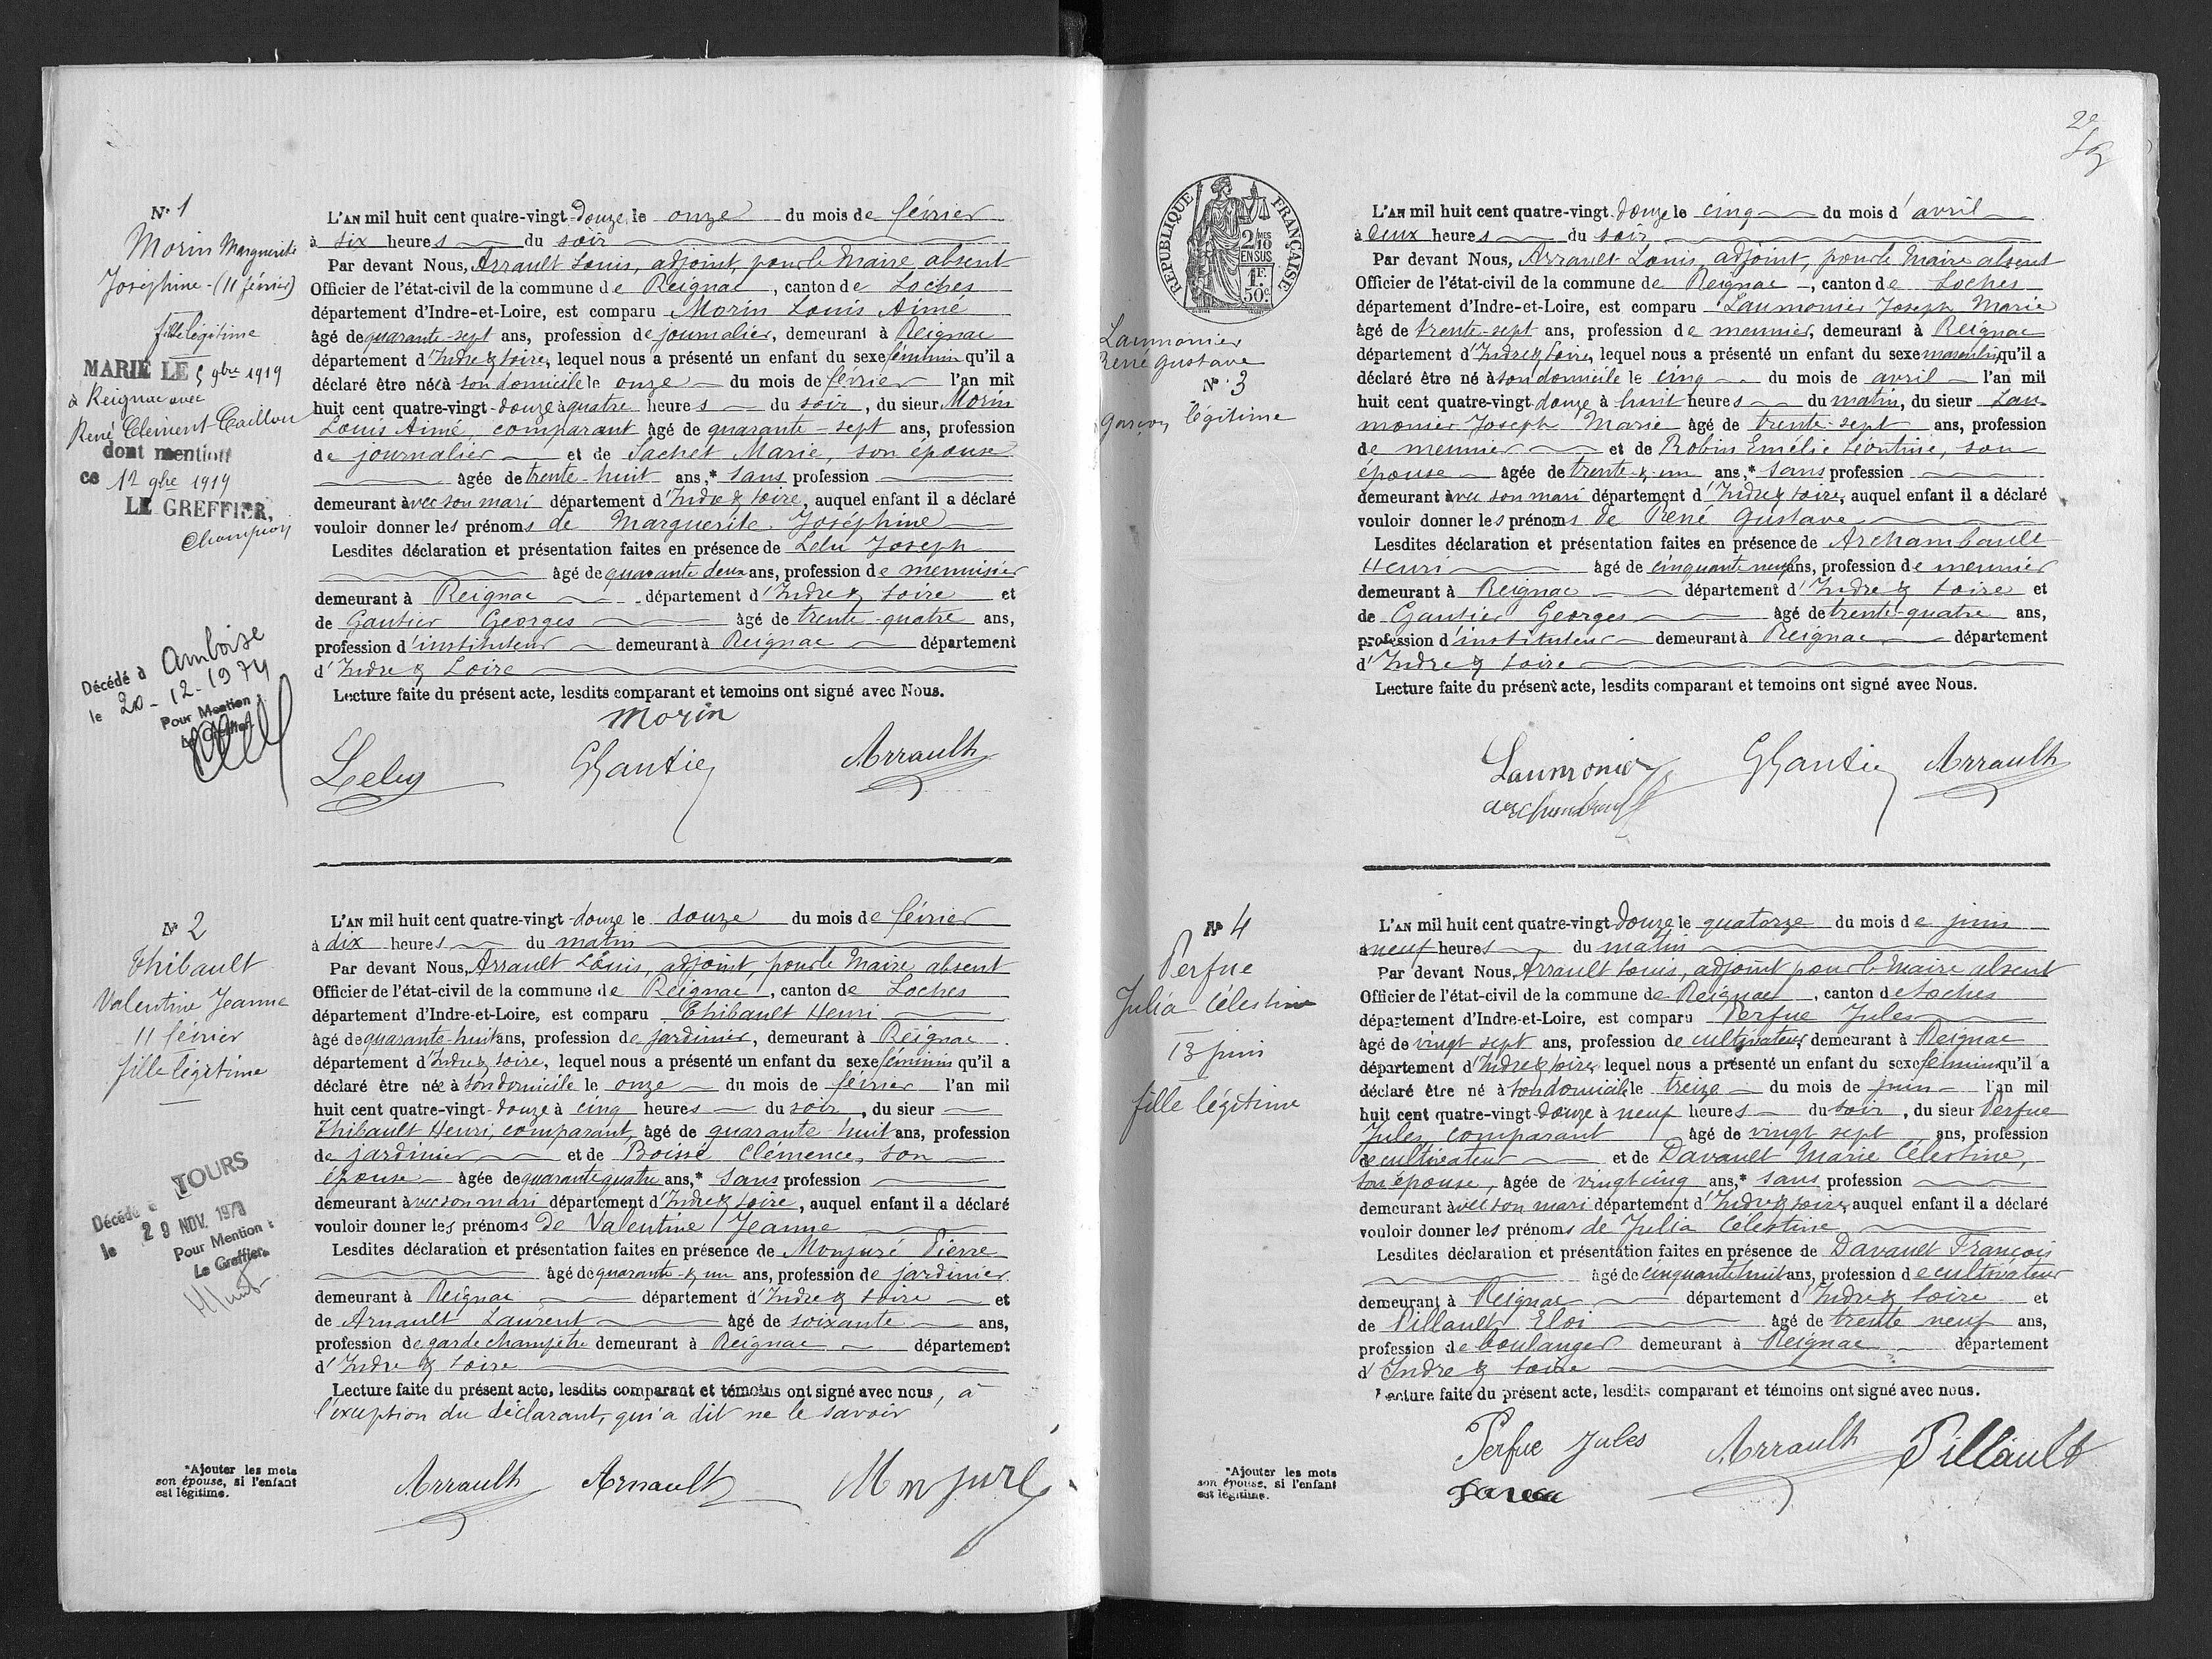 N° 1
Morin Marguerite
Joséphine - (11 février)
fille légitime
MARIÉ LE 5 9bre 1919
à Reignac avec
René Clément Caillou
dont mention
ce 12 9bre 1919
LE GREFFIER,
Champion
Décédé à Amboise
le 20-12-1974
Pour Mention
Le Greffier
L'AN mil huit cent quatre-vingt-douze le onze du mois de février
à six heures du soir
Par devant Nous, Arrault Louis, adjoint, pour le Maire absent
Officier de l'état-civil de la commune de Reignac, canton de Loches
département d'Indre-et-Loire, est comparu Morin Louis Aimé
âgé de quarante-sept ans, profession de journalier, demeurant à Reignac
département d'Indre & Loire, lequel nous a présenté un enfant du sexe féminin qu'il a
déclaré être née à son domicile le onze du mois de février l'an mil
huit cent quatre-vingt-douze à quatre heures du soir, du sieur Morin
Louis Aimé comparant âgé de quarante-sept ans, profession
de journalier et de Sachet Marie, son épouse
âgée de trente-huit ans,* sans profession
demeurant avec son mari département d'Indre & Loire, auquel enfant il a déclaré
vouloir donner les prénoms de Marguerite Joséphine
Lesdites déclaration et présentation faites en présence de Lelu Joseph
âgé de quarante deux ans, profession de menuisier
demeurant à Reignac département d'Indre & Loire et
de Gautier Georges âgé de trente-quatre ans,
profession d'instituteur demeurant à Reignac département
d'Indre & Loire
Lecture faite du présent acte, lesdits comparant et temoins ont signé avec Nous.
Morin
Lelu GGautier Arrault
N° 2
Thibault
Valentine Jeanne
11 février
fille légitime
Décédé à TOURS
le 29 NOV. 1978
Pour Mention :
Le Greffier
L'AN mil huit cent quatre-vingt-douze le douze du mois de février
à dix heures du matin
Par devant Nous, Arrault Louis, adjoint, pour le Maire absent
Officier de l'état-civil de la commune de Reignac, canton de Loches
département d'Indre-et-Loire, est comparu Thibault Henri
âgé de quarante-huit ans, profession de jardinier, demeurant à Reignac
département d'Indre & Loire, lequel nous a présenté un enfant du sexe féminin qu'il a
déclaré être née à son domicile le onze du mois de février l'an mil
huit cent quatre-vingt-douze à cinq heures du soir, du sieur
Thibault Henri, comparant, âgé de quarante-huit ans, profession
de jardinier et de Boissé Clémence, son
épouse âgée de quarante quatre ans,* sans profession
demeurant avec son mari département d'Indre & Loire, auquel enfant il a déclaré
vouloir donner les prénoms de Valentine Jeanne
Lesdites déclaration et présentation faites en présence de Monjuré Pierre
âgé de quarante & un ans, profession de jardinier
demeurant à Reignac département d'Indre & Loire et
de Arnault Laurent âgé de soixante ans,
profession de garde champêtre demeurant à Reignac département
d'Indre & Loire
Lecture faite du présent acte, lesdits comparant et témoins ont signé avec nous, à
l'exception du déclarant, qui a dit ne le savoir
*Ajouter les mots
son épouse, si l'enfant
est légitime.
Arrault Arnault Monjuré
2e
RÉPUBLIQUE FRANÇAISE
2/10 MES
EN SUS
1F.
50c.
Laumonier
René Gustave
N° 3
garçon légitime
L'AN mil huit cent quatre-vingt-douze le cinq du mois d'avril
à deux heures du soir
Par devant Nous, Arrault Louis, adjoint, pour le Maire absent
Officier de l'état-civil de la commune de Reignac, canton de Loches
département d'Indre-et-Loire, est comparu Laumonier Joseph Marie
âgé de trente-sept ans, profession de meunier, demeurant à Reignac
département d'Indre & Loire, lequel nous a présenté un enfant du sexe masculin qu'il a
déclaré être né à son domicile le cinq du mois de avril l'an mil
huit cent quatre-vingt-douze à huit heures du matin, du sieur Lau-
monier Joseph Marie âgé de trente-sept ans, profession
de meunier et de Robin Emélie Léontine, son
épouse âgée de trente & un ans,* sans profession
demeurant avec son mari département d'Indre & Loire, auquel enfant il a déclaré
vouloir donner les prénoms de René Gustave
Lesdites déclaration et présentation faites en présence de Archambault
Henri âgé de cinquante neuf ans, profession de meunier
demeurant à Reignac département d'Indre & Loire et
de Gautier Georges âgé de trente-quatre ans,
profession d'instituteur demeurant à Reignac département
d'Indre & Loire
Lecture faite du présent acte, lesdits comparant et temoins ont signé avec Nous.
Laumonier GGautier Arrault
archambault
N° 4
Perfue
Julia Célestine
13 juin
fille légitime
L'AN mil huit cent quatre-vingt-douze le quatorze du mois de juin
à neuf heures du matin
Par devant Nous, Arrault Louis, adjoint pour le Maire absent
Officier de l'état-civil de la commune de Reignac, canton de Loches
département d'Indre-et-Loire, est comparu Perfue Jules
âgé de vingt sept ans, profession de cultivateur, demeurant à Reignac
département d'Indre & Loire, lequel nous a présenté un enfant du sexe féminin qu'il a
déclaré être né à son domicile le treize du mois de juin l'an mil
huit cent quatre-vingt-douze à neuf heures du soir, du sieur Perfue
Jules, comparant âgé de vingt sept ans, profession
de cultivateur et de Davault Marie Célestine,
son épouse, âgée de vingt cinq ans,* sans profession
demeurant avec son mari département d'Indre & Loire, auquel enfant il a déclaré
vouloir donner les prénoms de Julia Célestine
Lesdites déclaration et présentation faites en présence de Davault François
âgé de cinquante huit ans, profession de cultivateur
demeurant à Reignac département d'Indre & Loire et
de Pillault Eloi âgé de trente neuf ans,
profession de boulanger demeurant à Reignac département
d'Indre & Loire
Lecture faite du présent acte, lesdits comparant et témoins ont signé avec nous.
*Ajouter les mots
son épouse, si l'enfant
est légitime.
Perfue Jules Arrault Pillault